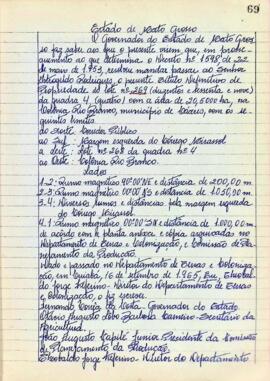 69
Estado de Mato Grosso
O Governador do Estado de Mato Gros
so faz saber aos que o presente virem que, em
ao que determina o Decreto nº 1598, de 22
de maio de 1953, resolve mandar passar ao Senhor
Rodrigues, o presente título definitivo de
Propriedade do lote nº 269 (duzentos e sessenta e nove)
da quadra 4 (quatro) com a área de 20,5000 ha, na
Colônia Rio Branco, município de Cáceres, com os se
guintes limites.
ao Norte: Corredor Público
ao Sul: Margem esquerda do Córrego
a Leste: Lote nº 268 da quadra nº 4
ao Oeste: Colônia Rio Branco.
Lados
1-2: Rumo magnético 90º00'NE e distância de 200,00 m.
2-3: Rumo magnético 00º00' e distância de 1.050,00 m.
3-4: Diversos rumos e distâncias pela margem esquerda
do Córrego
4-1: Rumo magnético 00º00' e distância de 1.000,00 m
de acordo com a planta anexa e cópia arquivadas no
Departamento de Terras e Colonização, e Comissão de Pla
nejamento da Produção.
Dado e passado no Departamento de Terras e Coloniza
ção, em Cuiabá, 16 de setembro de 1965, Eu,
do Jorge, Diretor do Departamento de Terras
e Colonização, o fiz escrever.
Fernando Corrêa da Costa - Governador do Estado
Secretário da
Agricultura.
João Augusto Capilé Junior, Presidente da Comissão
de Planejamento da Produção.
Jorge - Diretor do Departamento